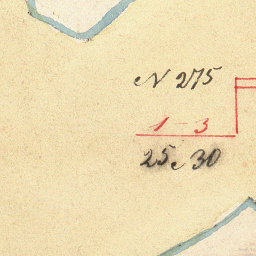 N 275
1-3
25,30